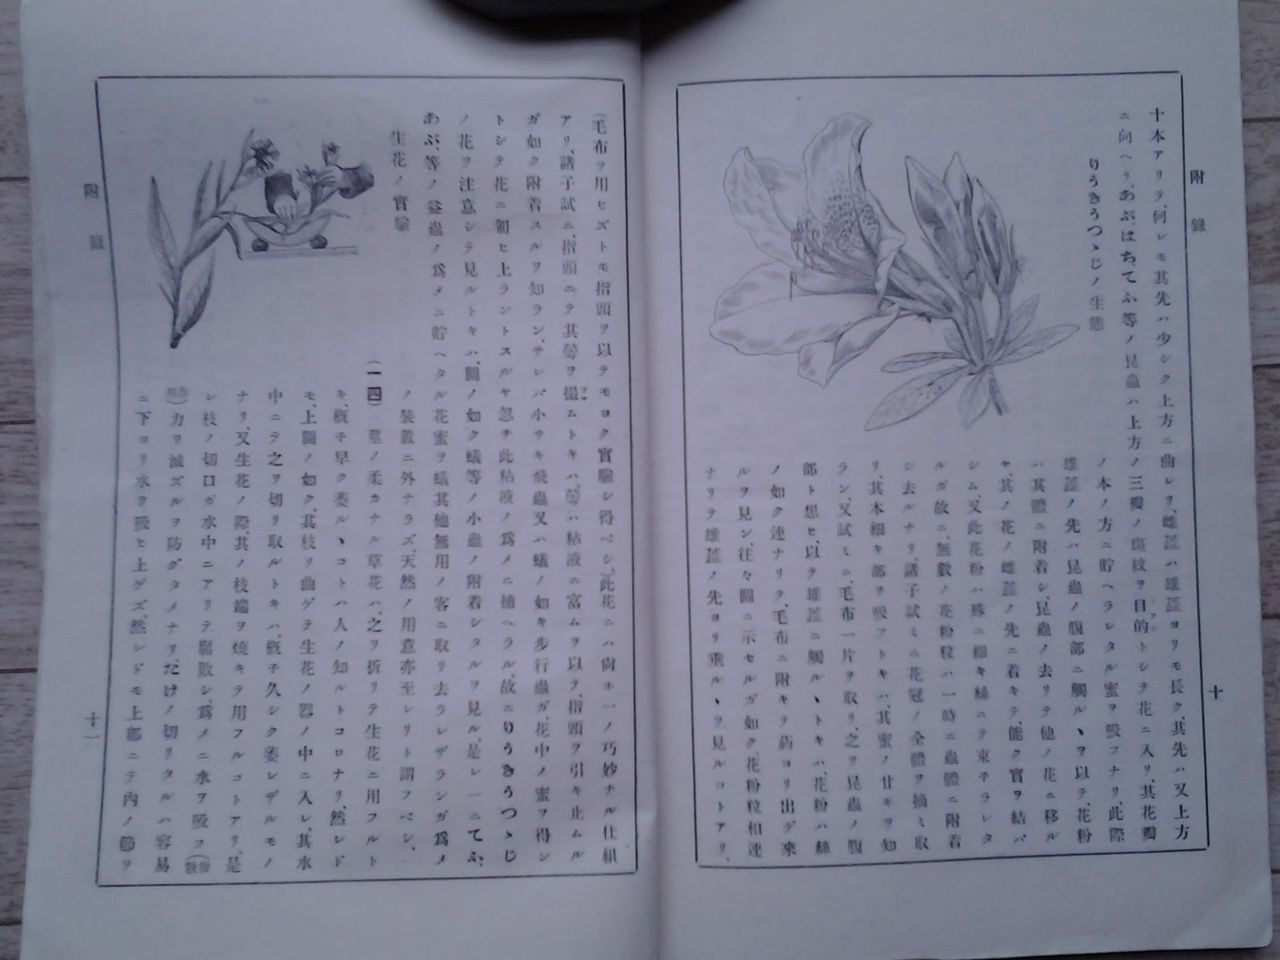 附錄
十
十本アリテ、何レモ其先ハ少シク上方ニ曲レリ、雌蕋ハ雄蕋ヨリモ長ク、其先ハ又上方
ニ向ヘリ、あぶ、はち、てふ等ノ昆蟲ハ上方ノ三瓣ノ斑紋ヲ目的トシテ花ニ入リ、其花瓣
りうきうつゝじノ生態
ノ本ノ方ニ貯ヘラレタル蜜ヲ吸フナリ、此際
雄蕋ノ先ハ昆蟲ノ腹部ニ觸ルヽヲ以テ、花粉
ハ其體ニ附着シ、昆蟲ノ去リテ他ノ花ニ移ル
ヤ、其ノ花ノ雌蕋ノ先ニ着キテ、能ク實ヲ結バ
シム、又此花粉ハ殊ニ細キ絲ニテ束チラレタ
ルガ故ニ、無數ノ花粉粒ハ一時ニ蟲體ニ附着
シ去ルナリ、諸子試ミニ花冠ノ全體ヲ摘ミ取
リ、其本細キ部ヲ吸フトキハ、其蜜ノ甘キヲ知
ラン、又試ミニ、毛布一片ヲ取リ、之ヲ昆蟲ノ腹
部ト想ヒ、以テ雄蕋ニ觸ルヽトキハ、花粉ハ絲
ノ如ク連ナリテ、毛布ニ附キテ葯ヨリ出デ來
ルヲ見ン、往々圖ニ示セルガ如ク、花粉粒相連
ナリテ雄蕋ノ先ヨリ垂ルヽヲ見ルコトアリ、
(毛布ヲ用ヒズトモ指頭ヲ以テモヨク實驗シ得ベシ、此花ニハ尙ホ一ノ巧妙ナル仕組
アリ、諸子試ニ、指頭ニテ其萼ヲ撮ムトキハ、萼ハ粘液ニ富ムヲ以テ、指頭ヲ引キ止ムル
ガ如ク附着スルヲ知ラン、サレバ小サキ飛蟲又ハ蟻ノ如キ步行蟲ガ、花中ノ蜜ヲ得ン
トシテ花ニ匍ヒ上ラントスルヤ忽チ此粘液ノ爲メニ捕ヘラル、故ニりうきうつゝじ
ノ花ヲ注意シテ見ルトキハ、圖ノ如ク蟻等ノ小蟲ノ附着シタルヲ見ル、是レ一ニてふ、
あぶ、等ノ益蟲ノ爲メニ貯ヘタル花蜜ヲ蟻其他無用ノ客ニ取リ去ラレザランガ爲メ
生花ノ實驗
ノ裝置ニ外ナラズ、天然ノ用意亦至レリト謂フベシ、
(一四) 莖ノ柔カナル草花ハ、之ヲ折リテ生花ニ用フルト
キ、槪チ早ク萎ルヽコトハ人ノ知ルトコロナリ、然レド
モ、上圖ノ如ク、其枝ヲ曲ゲテ生花ノ器ノ中ニ入レ、其水
中ニテ之ヲ切リ取ルトキハ、槪チ久シク萎レザルモノ
ナリ、又生花ノ際、其ノ枝端ヲ燒キテ用フルコトアリ、是
レ枝ノ切口ガ水中ニアリテ腐敗シ、爲メニ水ヲ吸フ
力ヲ減ズルヲ防グタメナリ、だけノ切リタルハ容易
ニ下ヨリ水ヲ吸ヒ上ゲズ、然レドモ上部ニテ內ノ節ヲ
附錄
十一